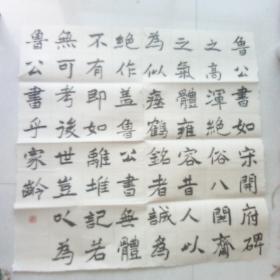 魯公書如宋開府碑
之高渾絕俗八關齋
之氣體雍容昔人以
為似瘞鶴銘者誠為
絕作蓋魯公書無體
不有即如離堆記若
無可考後世豈以為
魯公書乎家齡